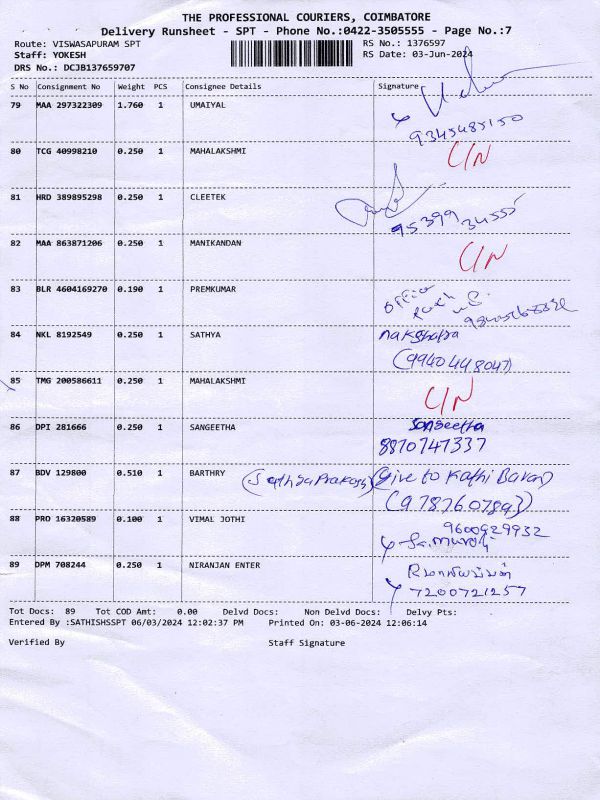 THE PROFESSIONAL COURIERS, COIMBATORE
Delivery Runsheet - SPT - Phone No.:0422-3505555 - Page No.:7
Route: VISWASAPURAM SPT RS No.: 1376597
Staff: YOKESH RS Date: 03-Jun-2024
DRS No.: DCJB137659707
S No Consignment No Weight PCS Consignee Details Signature
79 MAA 297322309 1.760 1 UMAIYAL
9345485150
80 TCG 40998210 0.250 1 MAHALAKSHMI C/N
81 HRD 389895298 0.250 1 CLEETEK
95399 34555
82 MAA 863871206 0.250 1 MANIKANDAN C/N
83 BLR 4604169270 0.190 1 PREMKUMAR office
84 NKL 8192549 0.250 1 SATHYA nakshatra
(9940448047)
85 TMG 200586611 0.250 1 MAHALAKSHMI C/N
86 DPI 281666 0.250 1 SANGEETHA Sangeetha
8870747337
87 BDV 129800 0.510 1 BARTHRY (Sathya Prakash) (give to Kathi Bavan)
88 PRO 16320589 0.100 1 VIMAL JOTHI 9600929932
89 DPM 708244 0.250 1 NIRANJAN ENTER
7200721257
Tot Docs: 89 Tot COD Amt: 0.00 Delvd Docs: Non Delvd Docs: Delvy Pts:
Entered By :SATHISHSSPT 06/03/2024 12:02:37 PM Printed On: 03-06-2024 12:06:14
Verified By Staff Signature